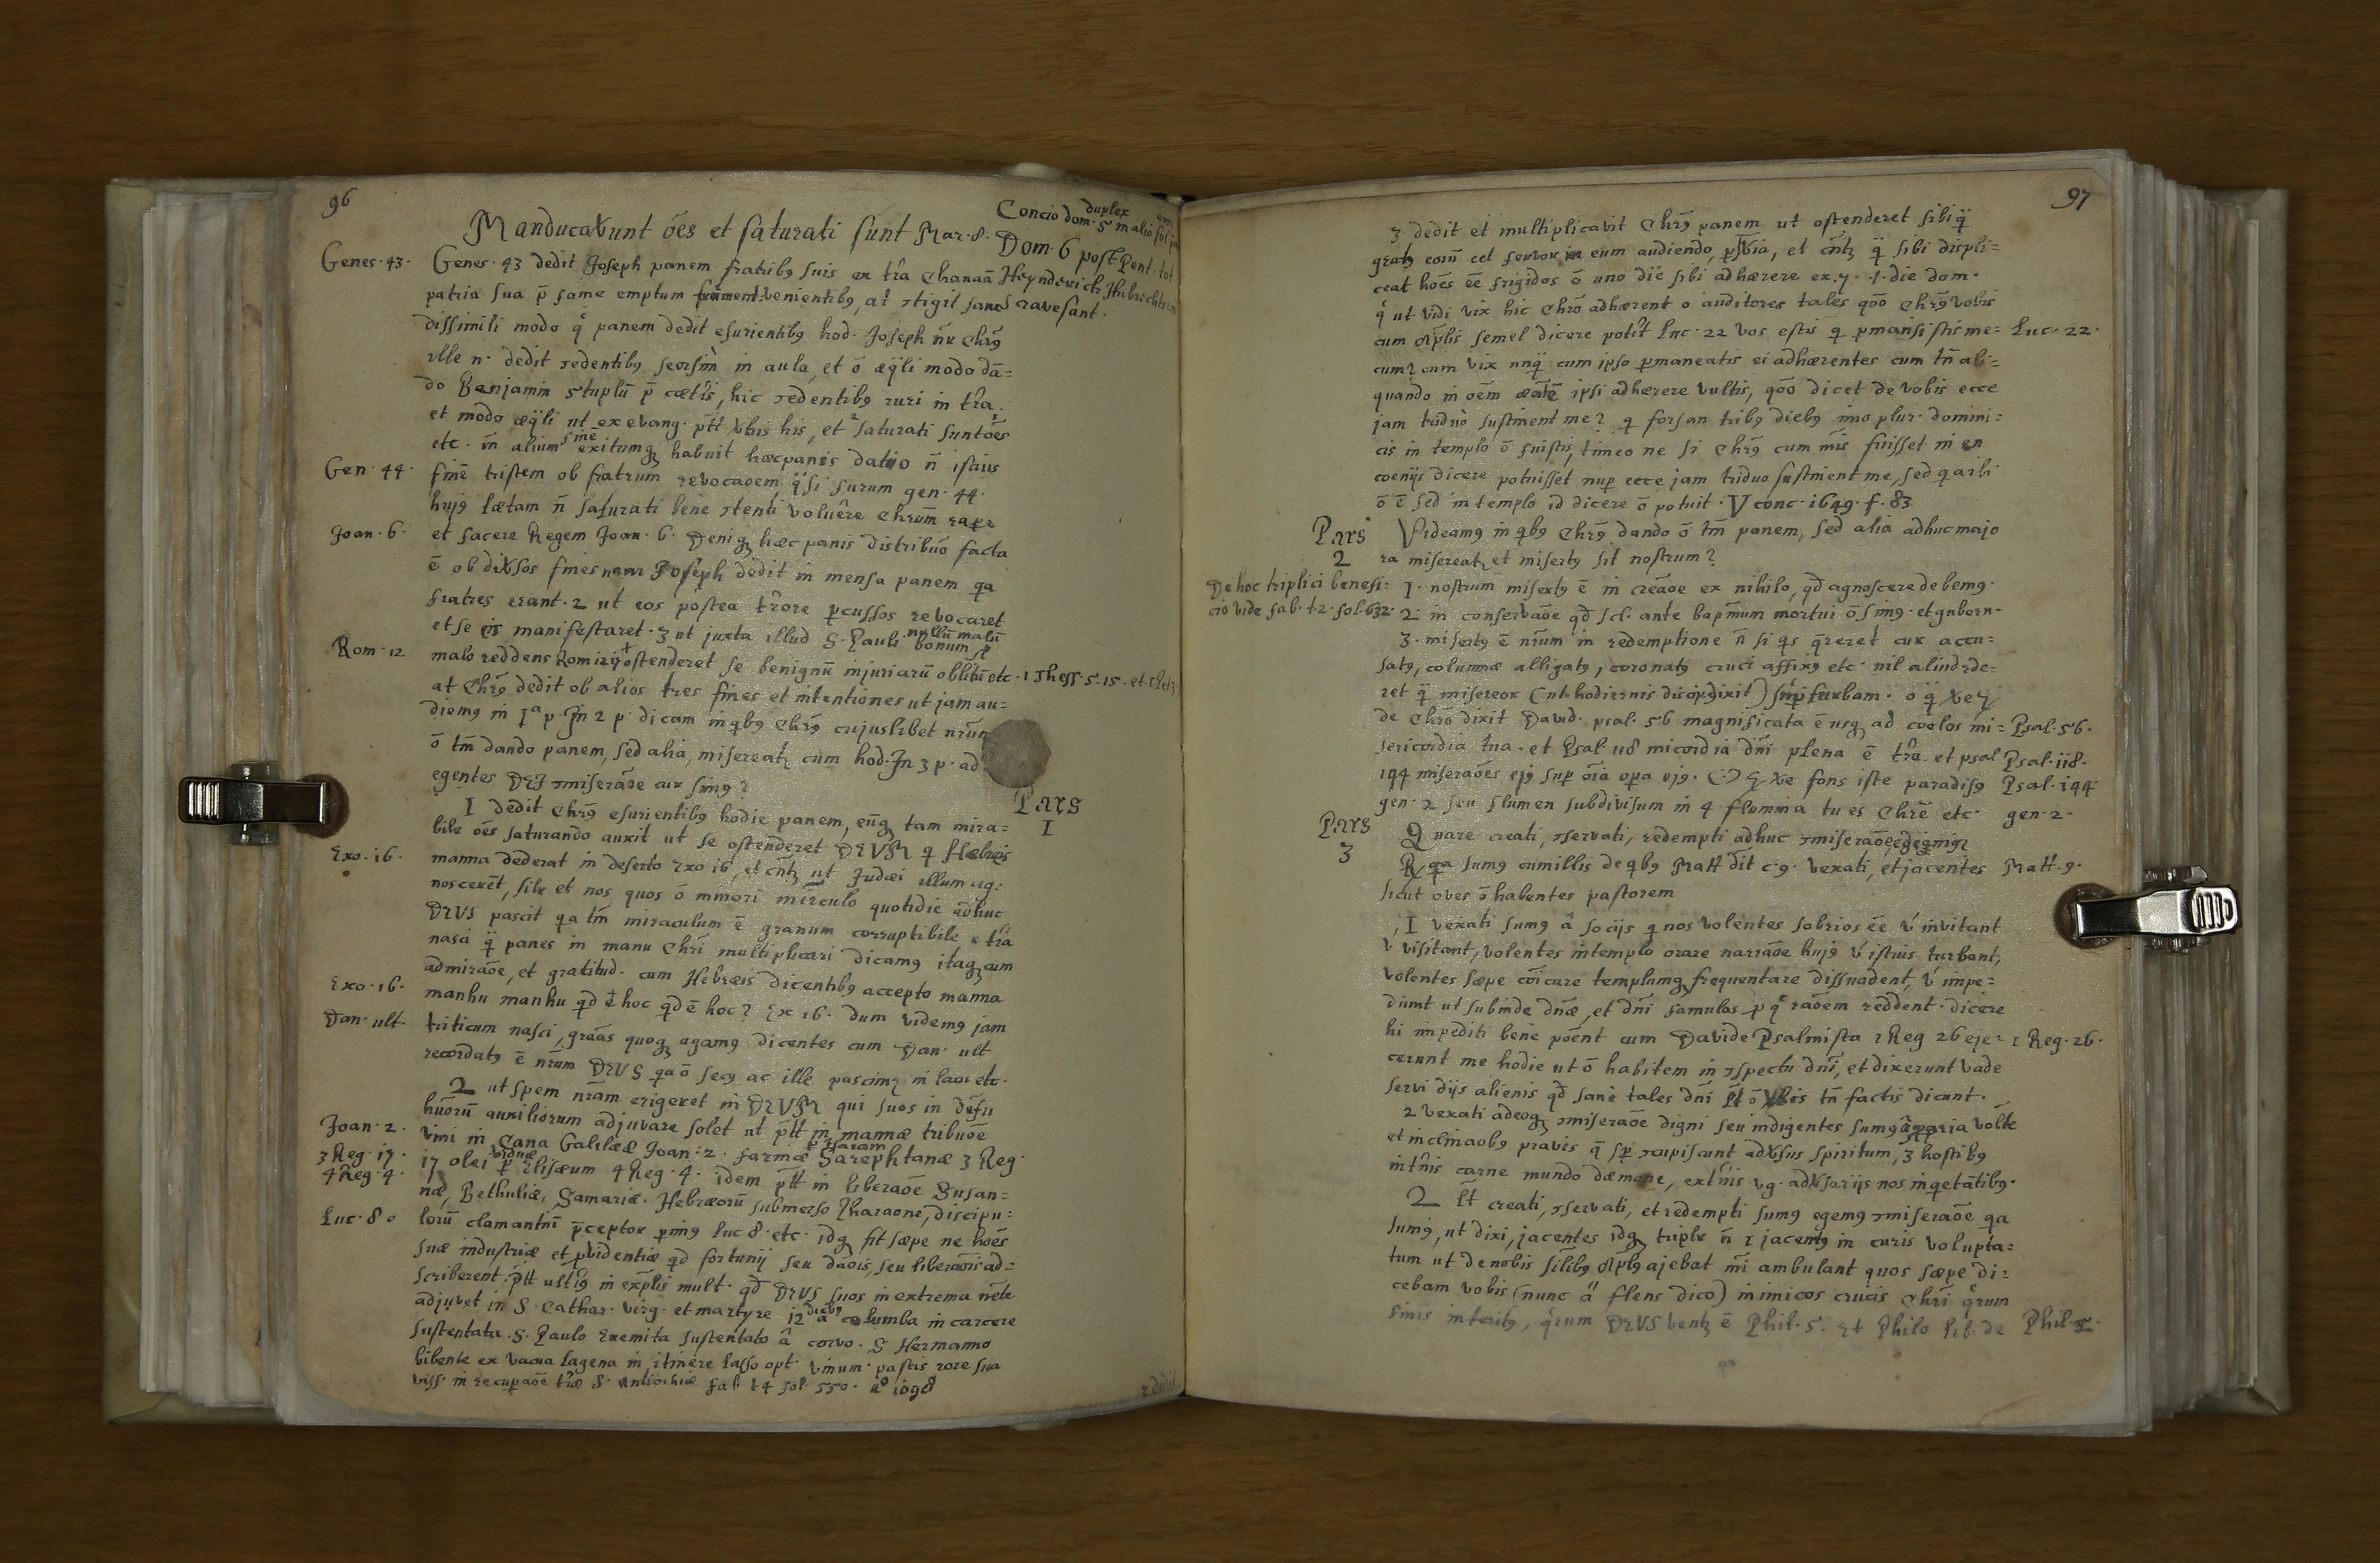 96
Concio duplex dom. 5 in alio fol.
Manducaverunt ões et saturati sunt Mar. 8. Dom. 6 post Pent. tot
Genes. 43. Genes. 43 dedit Joseph panem fratribꝰ suis ex tr̃a Chanaã Heynderich Hubrechts
patria sua p̃ fame emptum venientibꝰ, at
dissimili modo panem dedit esurientibꝰ hod. Joseph ñ Chrꝰ
ille n. dedit sedentibꝰ seorsim in aula, et õ æqli modo dã=
do Benjamin 5tuplũ p̃ cæteris, hic sedentibꝰ ruri in tr̃a
et modo æqli ut ex evang. ptt vbis his, et saturati sunt ões
etc. in alium fine exitumqꝫ habuit hæc panis datio ñ istius
Gen. 44 finẽ tristem ob fratrum revocaõem qsi furum gen. 44.
hujꝰ lætam ñ saturati bene voluêre Chrũm rape
Joan. 6. et facere Regem Joan. 6. Deniqꝫ hæc panis distribuõ facta
ẽ ob divsos fines nam Joseph dedit in mensa panem qa
fratres erant. 2 ut eos postea tr̃ore pcussos revocaret
et se is manifestaret. 3 ut juxta illud S. Pauli nullũ malũ
Rom. 12 malo reddens Rom. 12 ostenderet se benignũ injuriarũ oblitũ etc. 1 Thess. 5. 15. et 1 Pet. 3
at Chrꝰ dedit ob alios tres fines et intentiones ut jam au=
diemꝰ in 1ª p. In 2 p. dicam in qbꝰ Chrꝰ cujuslibet nrũm
õ tm̃ dando panem, sed alia, misereatꝫ cum hod. In 3 p. ad
egentes DEI miseraõe cur simꝰ?
Pars
1
1 dedit Chrꝰ esurientibꝰ hodie panem, eũqꝫ tam mira=
bilr ões saturando auxit ut se ostenderet DEUM q Hebreis
Exo. 16. manna dederat in deserto Exo 16, et ut Judæi illum ag=
noscerẽt, silr et nos quos õ minori mirculo quotidie adhuc
DEUS pascit qa tm̃ miraculum ẽ granum corruptibile e tr̃a
nasci q̃ panes in manu Chri multiplicari dicamꝰ itaqꝫ cum
admiraõe, et gratitud. cum Hebræis dicentibꝰ accepto manna
Exo. 16. manhu manhu qd ẽ hoc qd ẽ hoc? Ex 16. dum videmꝰ jam
Dan. ult. triticum nasci, grãas quoqꝫ agamꝰ dicentes cum Dan. ult
recordatꝰ ẽ nrũm DEUS qa õ secꝰ ac ille pascimꝫ in lacu etc.
2 ut spem nrãm erigeret in DEUM qui suos in defu
huõrũ auxiliorum adjuvare solet ut ptt in mannæ tribuõe
Joan. 2. vini in Cana Galilææ Joan. 2. farinæ Sarephtanæ 3 Reg.
3 Reg. 17. 17 olei viduæ p̃ Elisæum 4 Reg. 4. idem ptt in liberaõe Susan=
4 Reg. 4. næ, Bethuliæ, Samariæ. Hebræorũ submerso Pharaone, discipu=
Luc. 8. lorũ clamantiũ p̃ceptor pimꝰ luc 8. etc. idqꝫ fit sæpe ne hoẽs
suæ industriæ et pvidentiæ qd fortunij seu daõis, seu liberaõis ad=
scriberent. ptt ultiꝰ in exẽplis mult. qd DEUS suos in extrema nẽte
adjuvet in S. Cathar. virg. et martyre 12 diebꝰ â columba in carcere
sustentata. S. Paulo Eremita sustentato â corvo. S Hermanno
bibente ex vacua lagena in itinere lasso opt. vinum. pastis rore sua
viss. in recupaõe tr̃æ S. Antiochiæ fab. t 4 fol. 550. aº 1098
2 dedit
97
3 dedit et multiplicavit Chrꝰ panem ut ostenderet sibi q̃
gratꝰ eorũ eet fervor in eum audiendo, et q̃ sibi displi=
ceat hoẽs ẽe frigidos õ uno die sibi adhærere ex. g. 1. die dom.
ut vidi vix hic Chrõ adhærent o auditores tales qõo Chrꝰ vobis
cum aplis semel dicere potit Luc. 22 vos estis q pmansistis me= Luc. 22.
cum? cum vix nnq̃ cum ipso pmaneatis ei adhærentes cum tñ ali=
quando in oẽm æãte ipsi adhærere vultis, qõo dicet de vobis ecce
jam triduò sustinent me? q forsan tribꝰ diebꝰ imo plur. domini=
cis in templo õ fuistis, timeo ne si Chrꝰ cum mis fuisset in en
coenijs dicere potuisset nup ecce jam triduo sustinent me, sed qa ibi
õ ẽ sed in templo id dicere õ potuit. V conc. 1649. f. 83
Pars
2
Videamꝰ in qbꝰ Chrꝰ dando õ tm̃ panem, sed alia adhuc majo
ra misereatꝫ et misertꝰ sit nostrum?
De hoc triplici benefi=
cio vide fab. t. 2. fol. 632.
1. nostrum misertꝰ ẽ in creãoe ex nihilo, qd agnoscere debemꝰ.
2. in conservaõe qd scl. ante bapmum mortui õ simꝰ. et gubern.
3. misertꝰ ẽ nrũm in redemptione ñ si qs q̃reret cur accu=
satꝰ, columnæ alligatꝰ, coronatꝰ cruci affixꝰ etc. nil aliud rde=
ret q̃ misereor (ut hodiernis discip. dixit) sup turbam. o q̃ vey
de Chrõ dixit David. psal. 56 magnificata ẽ usqꝫ ad coelos mi= Psal. 56.
sericordia tua. et Psal 118 micordia dñi plena ẽ tr̃a. et psal Psal. 118.
144 miseraões ejꝰ sup oĩa opa ejꝰ. Xe fons iste paradisꝰ Psal. 144
gen. 2 seu flumen subdivisum in 4 flumina tu es Chrẽ etc. gen. 2.
Pars
3
Quare creati, servati, redempti adhuc miseraõe
R qa sumꝰ cum illis de qbꝰ Matt dit c. 9. vexati, et jacentes Matt. 9.
sicut oves õ habentes pastorem
1 vexati sumꝰ â socijs q nos volentes sobrios ẽe v invitant
v visitant, volentes in templo orare narraõe hujꝰ v istius turbant,
volentes sæpe cõicare templumqꝫ frequentare dissuadent, v impe=
diunt ut subinde dnæ, et dni famulas p q raõem reddent. dicere
hi impediti bene poẽnt cum Davide Psalmista 1 Reg 26 eje= 1 Reg. 26.
cerunt me hodie ut õ habitem in spectu dni, et dixerunt vade
servi dijs alienis qd sanè tales dni et õ vbis tñ factis dicunt.
2 vexati adeoqꝫ miseraõe digni seu indigentes sumꝰ â ppria volte
et inclinaobꝰ pravis q̃ sp cupiscunt advsus spiritum, 3 hostibꝰ
intr̃nis carne mundo dæmone, extr̃nis vg. advsarijs nos inqetãtibꝰ.
2 Et creati, servati, et redempti sumꝰ egemꝰ miseraõe qa
sumꝰ, ut dixi, jacentes idqꝫ triplr ñ 1 jacemꝰ in curis volupta=
tum ut de nobis silibꝰ aplꝰ ajebat mi ambulant quos sæpe di=
cebam vobis (nunc aũ flens dico) inimicos crucis Chri qrum
finis interitꝰ, qrum DEUS ventꝫ ẽ Phil. 5. Et Philo lib. de Phil. 5.